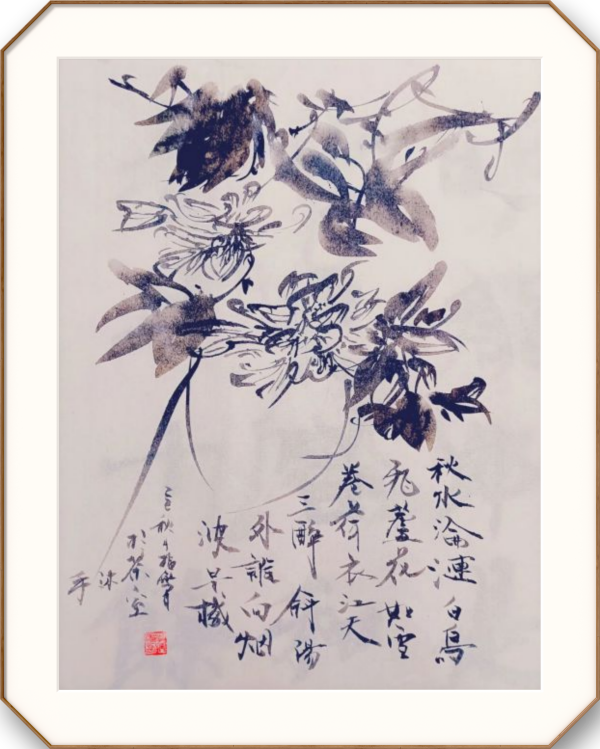 秋水淪漣白鳥
飛蘆花如雪
卷荷衣江天
三醉斜陽
外誰向烟
波
秋月
於茶室
沐
手